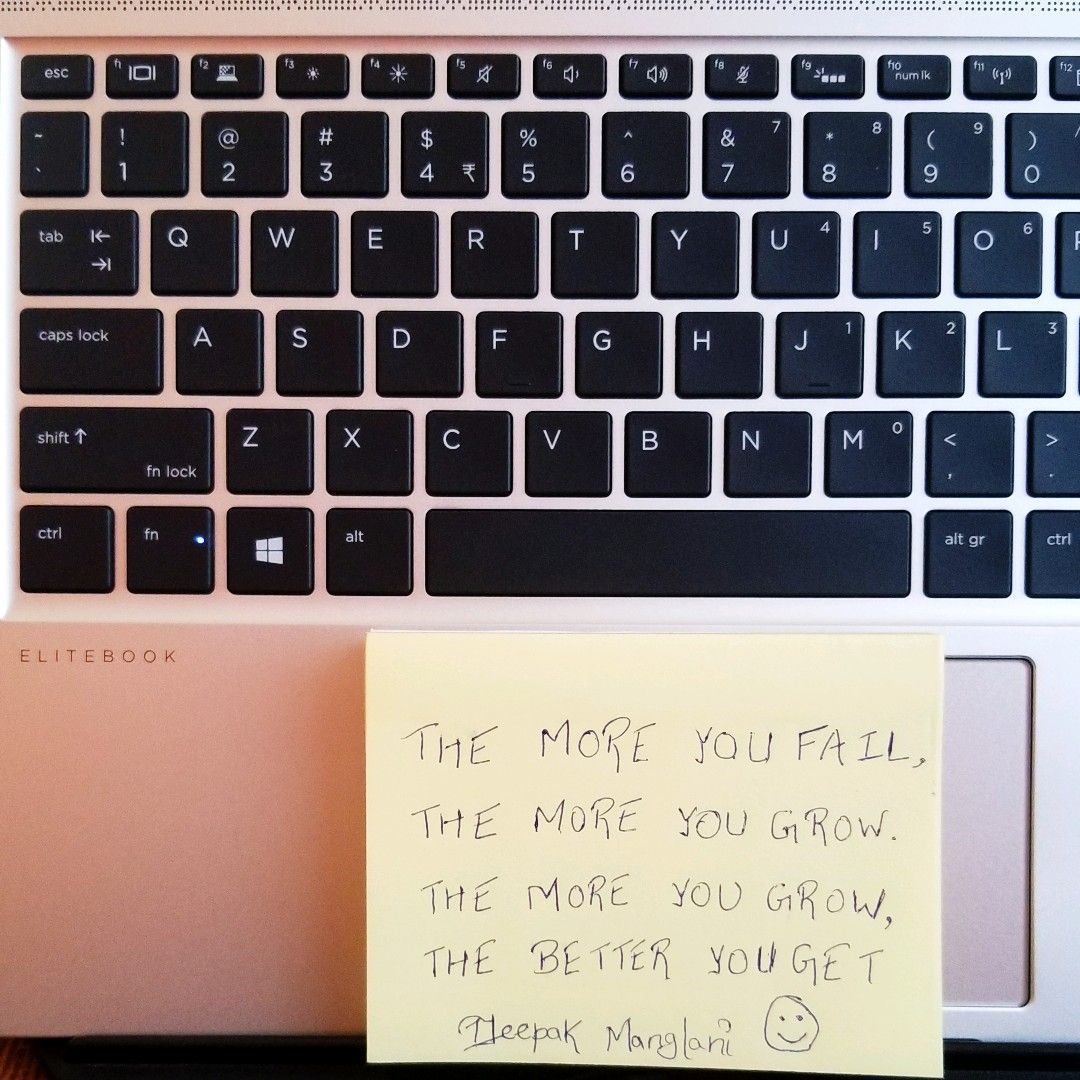 esc f1 f2 f3 f4 f5 f6 f7 f8 f9 f10 num lk f11 f12
~ ! @ # $ % ^ & 7 * 8 ( 9 )
` 1 2 3 4 ₹ 5 6 7 8 9 0
tab Q W E R T Y U 4 I 5 O 6
caps lock A S D F G H J 1 K 2 L 3
shift Z X C V B N M 0 < >
fn lock , .
ctrl fn alt alt gr ctrl
ELITEBOOK
THE MORE YOU FAIL,
THE MORE YOU GROW.
THE MORE YOU GROW,
THE BETTER YOU GET
Deepak Manglani